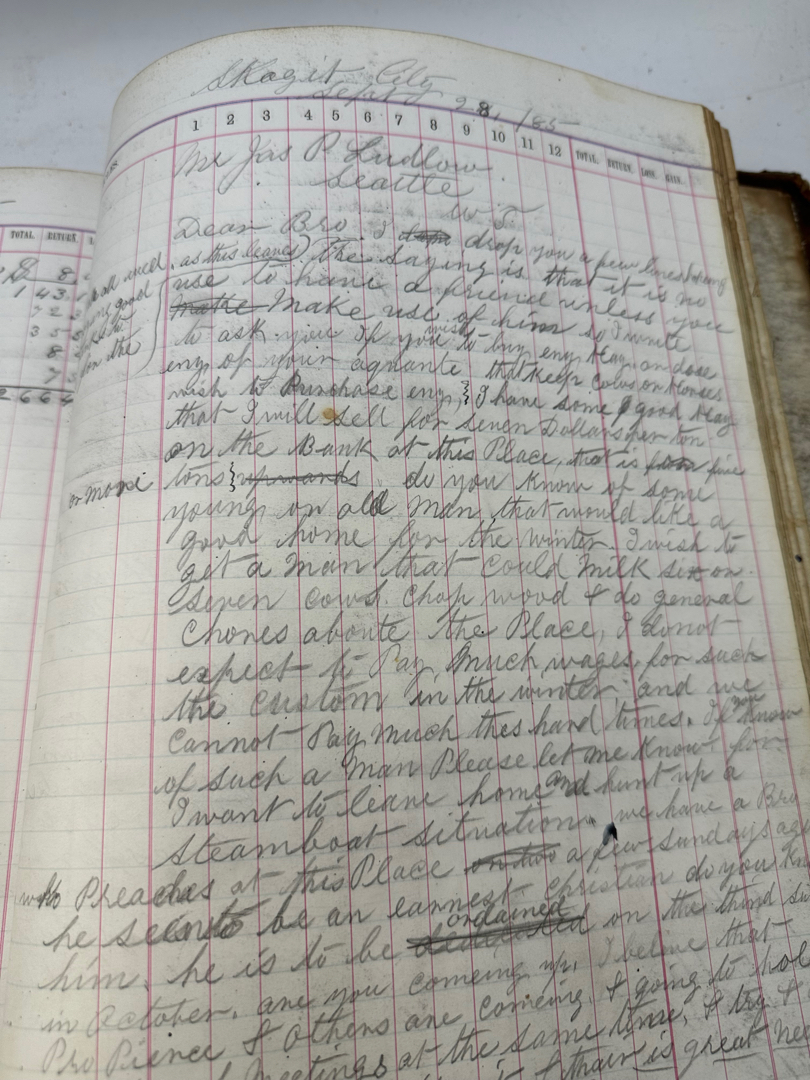 Skagit City
Sept 28, /85
1 2 3 4 5 6 7 8 9 10 11 12 TOTAL. RETURN. LOSS. GAIN.
Mr Jas P. Ludlow.
Seattle
W. T.
Dear Bro. I drop you a few lines
all well as this leaves the saying is that it is no
use to have a friend unless you
Make use of him so I write
to ask you If you wish to buy eny Hay, on dose
eny of your aquante that keep Cows on Horses
wish to Purchase eny, I have some good Hay
that I will sell for seven Dollars per ton
on the Bank at this Place, that is five
tons upwards or more do you know of some
young on old man, that would like a
good home for the winter. I wish to
get a man that could milk six on
seven cows. chop wood & do general
Chores aboute the Place, I donot
expect to Pay Much wages, for such
the custom in the winter, and we
cannot Pay much thes hard times. If you know
of such a Man Please let me know for
I want to leave home and hunt up a
steamboat situation, we have a Bro
who Preaches at this Place a few Sundays ago
he to be an earnest Christian do you
him. he is to be ordained on the third
in October, are you comeing up, I beleve that
Bro Pierce & others are comeing, & going to
Meetings at the same time, & try &
& thair is great
TOTAL. RETURN.
8.
1 43.
72
35
8
7
2664